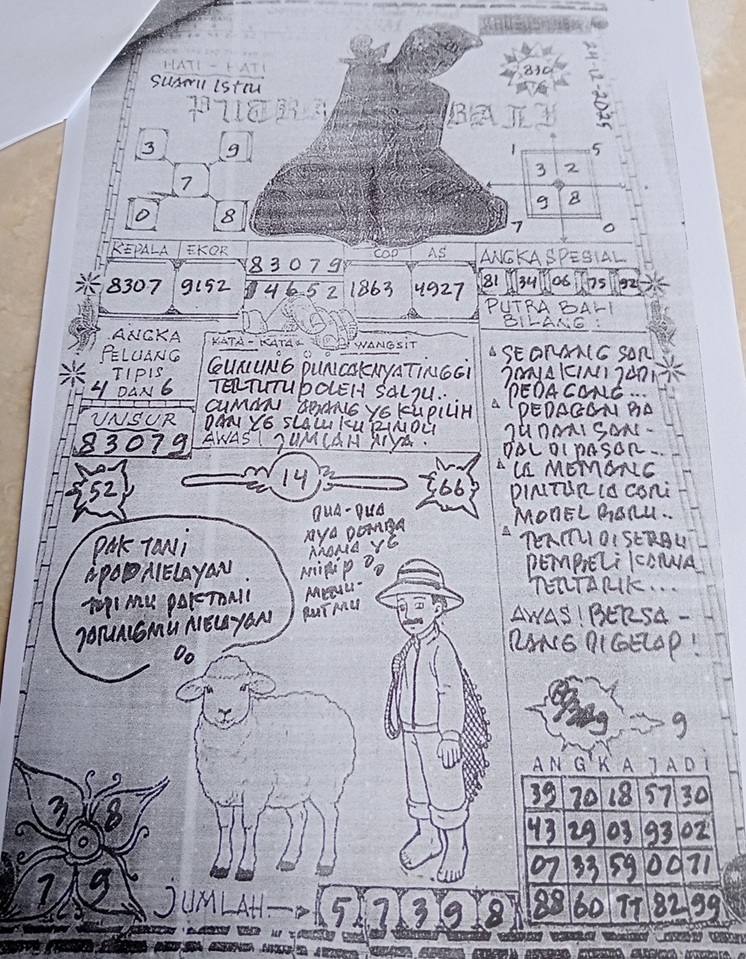 HATI - HATI
SUAMI ISTRI
PUTRA BALI
830
24-12-2025
3 9
7
0 8
1 5
3 2
9 8
7 0
KEPALA EKOR
8307 9152
83079
04652
COP AS
1863 4927
ANGKA SPESIAL
81 34 06 75 92
PUTRA BALI
BILANG:
ANGKA
PELUANG
TIPIS
4 DAN 6
UNSUR
83079
KATA - KATA WANGSIT
GUNUNG PUNCAKNYA TINGGI
TERTUTUP OLEH SALJU..
CUMAN ABANG YG KUPILIH
DAN YG SLALU KURINDU
AWAS! JUMLAH NYA.
SEORANG SAR
JANA KINI JADI
PEDAGANG...
PEDAGAN BA
JU DAN SAN-
DAL DI PASAR...
IA MEMANG
PINTUR IA CARI
MODEL BARU..
TENTU DISERBU
PEMBELI KARNA
TERTARIK...
AWAS! BERSA-
RANG DI GELAP!
52
14
66
PAK TANI
APO NELAYAN
TOPI MU PAK TANI
JARINGMU NELAYAN
DUA-DUA
NYA DOMBA
MANA YG
MIRIP
MENU-
RUTMU
9
ANGKA JADI
39 70 18 57 30
43 29 03 93 02
07 33 59 00 71
88 60 TT 82 99
3 8
7 9
JUMLAH
5 7 3 9 8